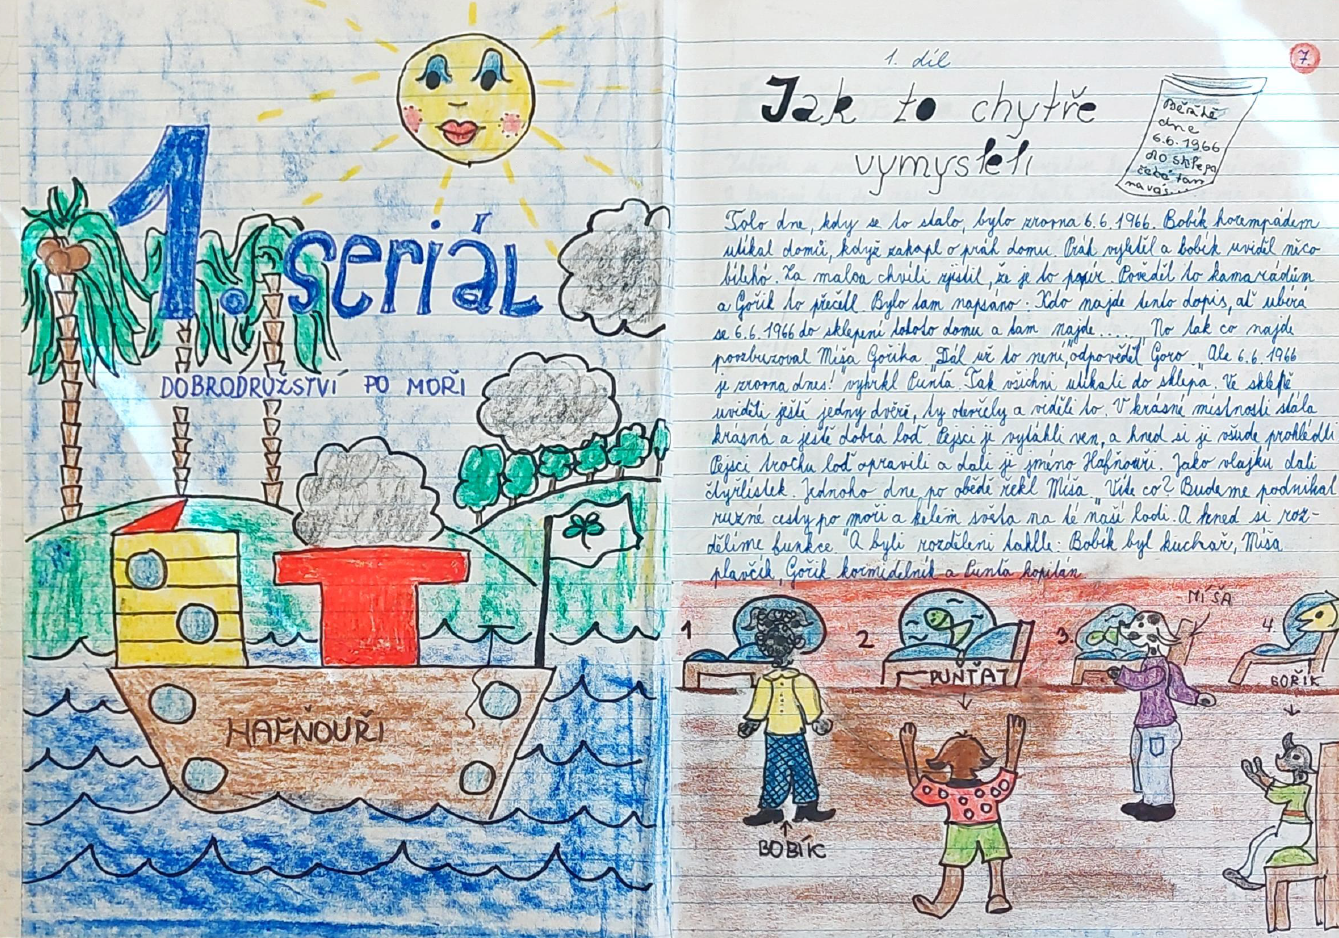 1. seriál
DOBRODRUŽSTVÍ PO MOŘI
HAFŇOUŘI
7
1. díl
Jak to chytře
vymysleli
Běžte
dne
6.6.1966
do sklepa
čeká tam
na vás....
Toho dne, kdy se to stalo, bylo zrovna 6.6.1966. Bobík horempádem
utíkal domů, když zakopl o práh domu. Práh vyletěl a bobík uviděl něco
bílého. Za malou chvíli zjistil, že je to papír. Pověděl to kamarádům
a Gořík to přečetl. Bylo tam napsáno: Kdo najde tento dopis, ať ubírá
se 6.6.1966 do sklepení tohoto domu a tam najde...... „No tak co najde
povzbuzoval Míša Goříka „Dál už to není, odpověděl Goro „Ale 6.6.1966
je zrovna dnes!" vyhrkl Punťa. Tak všichni utíkali do sklepa". Ve sklepě
uviděli ještě jedny dvéře, ty otevřely a viděli to. V krásné místnosti stála
krásná a ještě dobrá loď. Pejsci ji vytáhli ven, a hned si ji všude prohlédli
Pejsci trochu loď opravili a dali jí jméno Hafňouři. Jako vlajku dali
čtyřlístek. Jednoho dne, po obědě řekl Míša „Víte co? Budeme podnikat
různé cesty po moři a kolem světa na té naší lodi. A hned si roz-
dělíme funkce "A byli rozděleni takhle: Bobík byl kuchař, Míša
plavčík, Gořík kormidelník a Punťa kapitán
1
2
3.
4
MÍŠA
PUNŤA
BOŘÍK
BOBÍK